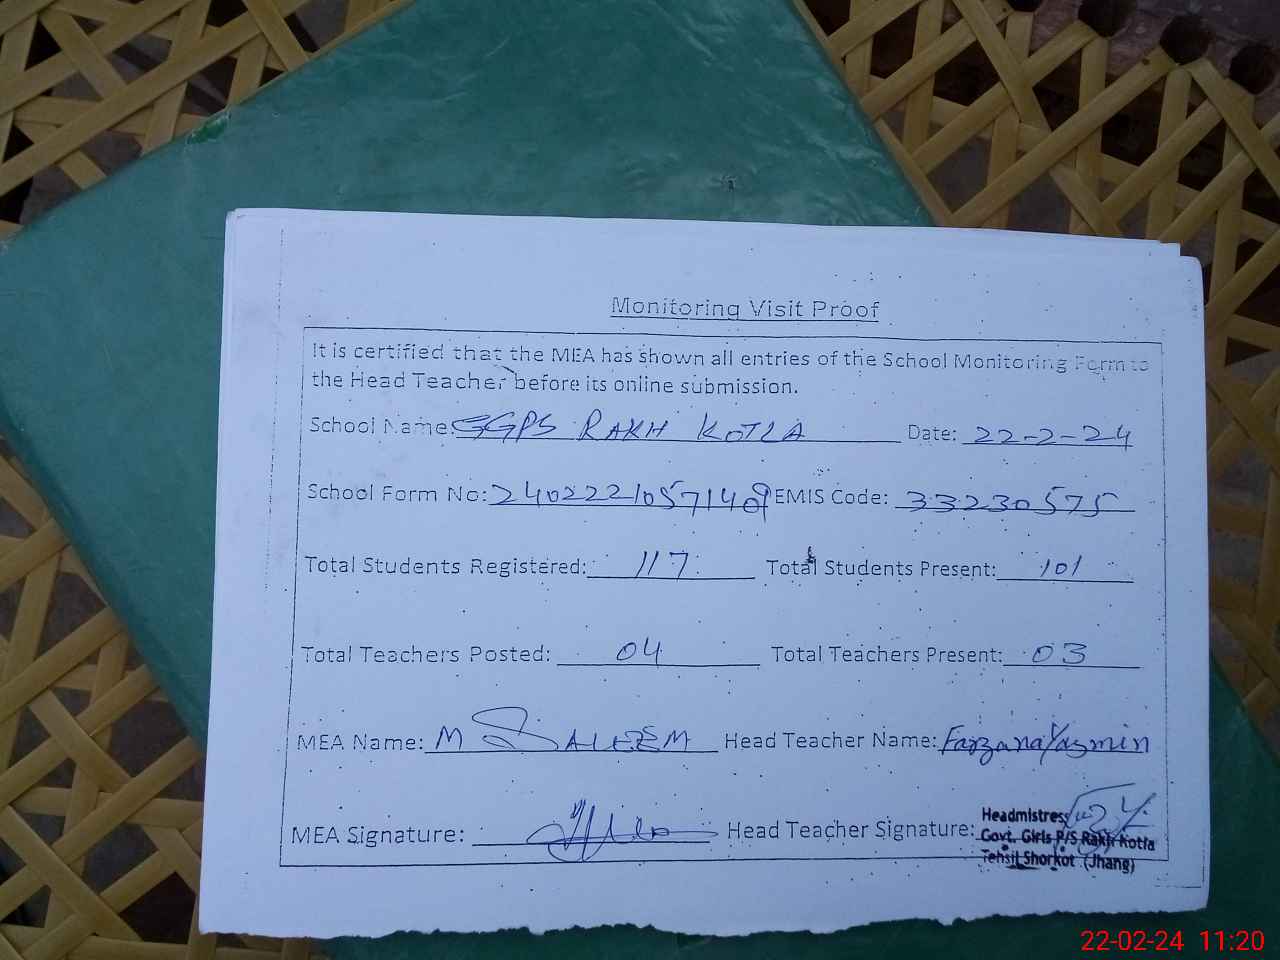 Monitoring Visit Proof
It is certified that the MEA has shown all entries of the School Monitoring Form to
the Head Teacher before its online submission.
School Name: GGPS RAKH KOTLA Date: 22-2-24
School Form No: 240222210571409 EMIS Code: 33230575
Total Students Registered: 117 Total Students Present: 101
Total Teachers Posted: 04 Total Teachers Present: 03
MEA Name: M SALEEM Head Teacher Name: Farzana Yasmin
MEA Signature: Head Teacher Signature:
Headmistress
Govt. Girls P/S Rakh Kotla
Tehsil Shorkot (Jhang)
22-02-24 11:20